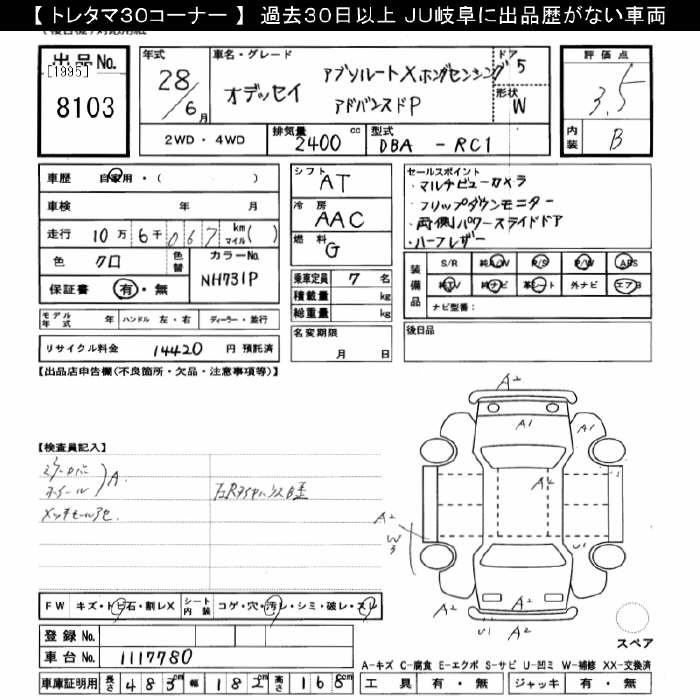 【 トレタマ30コーナー 】 過去30日以上 JU岐阜に出品歴がない車両
出品No. [1995] 8103
年式 28/6月
車名・グレード オデッセイ アブソルートX ホンダセンシング アドバンスドP
ドア 5
形状 W
評価点 3.5
内装 B
2WD・4WD 排気量 2400 cc 型式 DBA - RC1
車歴 自家用・( )
車検 年 月
走行 10万6千067 km マイル ( )
色 クロ 色替 カラーNo. NH731P
保証書 有・無
シフト AT
冷房 AAC
燃料 G
乗車定員 7 名
積載量 kg
総重量 kg
名変期限 月 日
セールスポイント
・マルチビューカメラ
・フリップダウンモニター
・両側パワースライドドア
・ハーフレザー
装備品 S/R 純A/W P/S P/W ABS
純TV 純ナビ 革シート 外ナビ エアB
ナビ型番:
後日品
モデル年式 年 ハンドル 左・右 ディーラー・並行
リサイクル料金 14420 円 預託済
【出品店申告欄(不良箇所・欠品・注意事項等)】
【検査員記入】
ホイール A
A2
A1
A1
A2
A2
W3
U1
A2
A2
U1
A2
FW キズ・トビ石・割レX シート内装 コゲ・穴・汚レ・シミ・破レ・スレ
登録No.
車台No. 1117780
スペア
A-キズ C-腐食 E-エクボ S-サビ U-凹ミ W-補修 XX-交換済
車庫証明用 長さ 483cm 幅 182cm 高さ 168cm 工具 有・無 ジャッキ 有・無